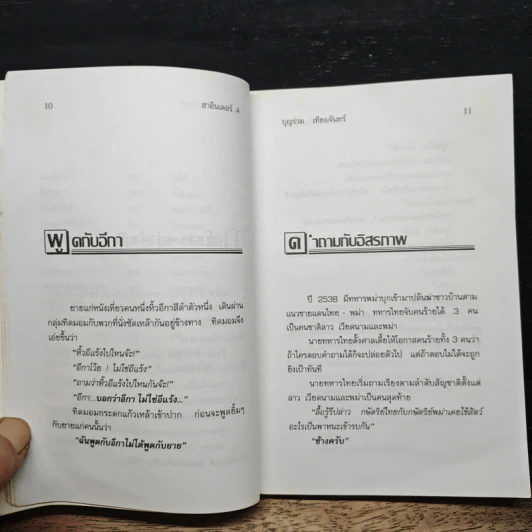 10
ฮาอินเตอร์ 4
พูดกับอีกา
ยายแก่หนังเหี่ยวคนหนึ่งหิ้วอีกาสีดำตัวหนึ่ง เดินผ่าน
กลุ่มทิดมอมกับพวกที่นั่งซัดเหล้ากันอยู่ข้างทาง ทิดมอมจึง
เอ่ยขึ้นว่า
"หิ้วอีแร้งไปไหนจ๊ะ!"
"อีกาโว้ย ! ไม่ใช่อีแร้ง"
"ถามว่าหิ้วอีแร้งไปไหนกันจ๊ะ!"
"อีกา...บอกว่าอีกา ไม่ใช่อีแร้ง..."
ทิดมอมกระดกแก้วเหล้าเข้าปาก ก่อนจะพูดยิ้มๆ
กับยายแก่คนนั้นว่า
"ฉันพูดกับอีกาไม่ได้พูดกับยาย"
11
บุญร่วม เทียมจันทร์
คำถามกับอิสรภาพ
ปี 2538 มีทหารพม่าบุกเข้ามาปล้นฆ่าชาวบ้านตาม
แนวชายแดนไทย - พม่า ทหารไทยจับคนร้ายได้ 3 คน
เป็นคนชาติลาว เวียดนามและพม่า
นายทหารไทยตั้งศาลเตี้ยให้โอกาสคนร้ายทั้ง 3 คนว่า
ถ้าใครตอบคำถามได้ก็จะปล่อยตัวไป แต่ถ้าตอบไม่ได้จะถูก
ยิงเป้าทันที
นายทหารไทยเริ่มถามเรียงตามลำดับสัญชาติตั้งแต่
ลาว เวียดนามและพม่าเป็นคนสุดท้าย
"ลื้อรู้รึปล่าว กษัตริย์ไทยกับกษัตริย์พม่าเคยใช้สัตว์
อะไรเป็นพาหนะเข้ารบกัน"
"ช้างครับ"